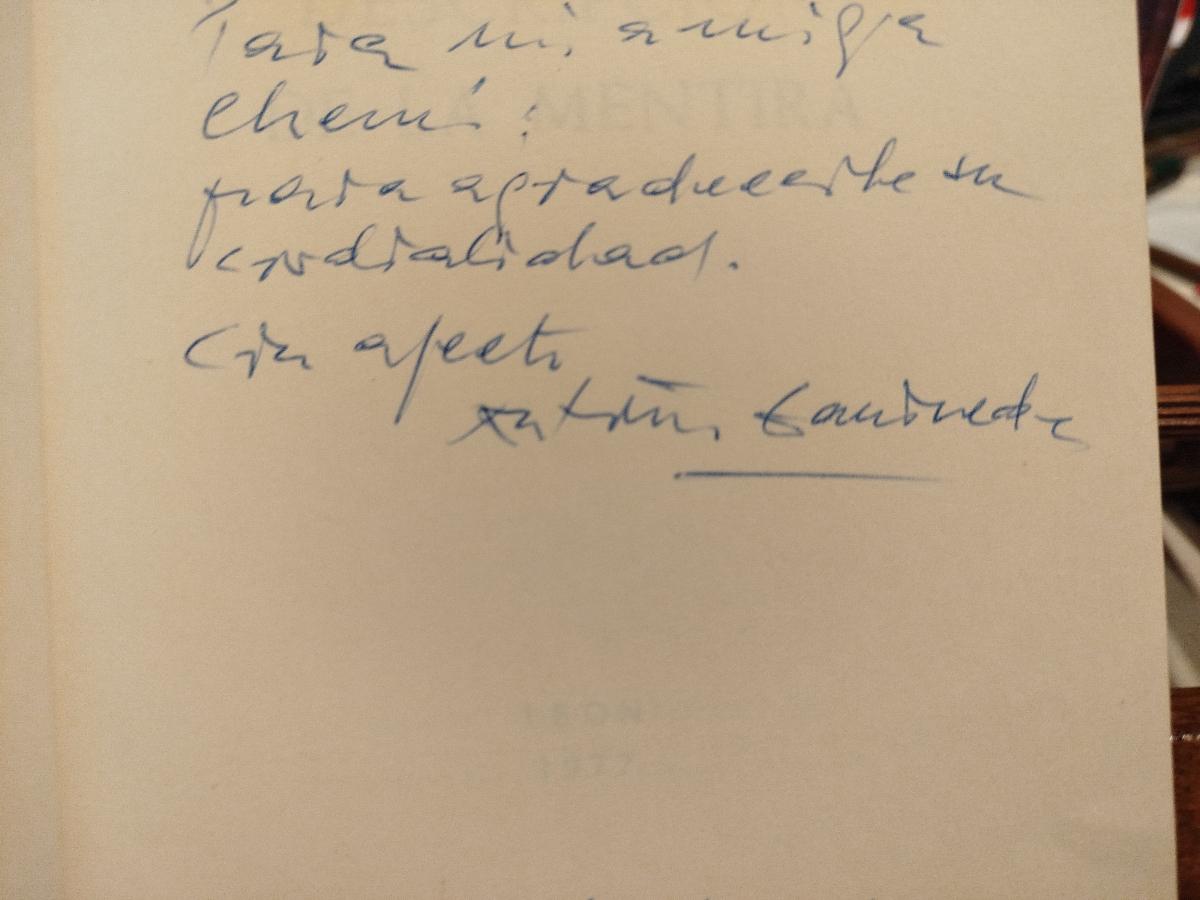 Para mi amiga
Chemi:
para agradecerle su
cordialidad.
Con afecto
Antonio Gamoneda
DE LA MENTIRA
LEON
1977